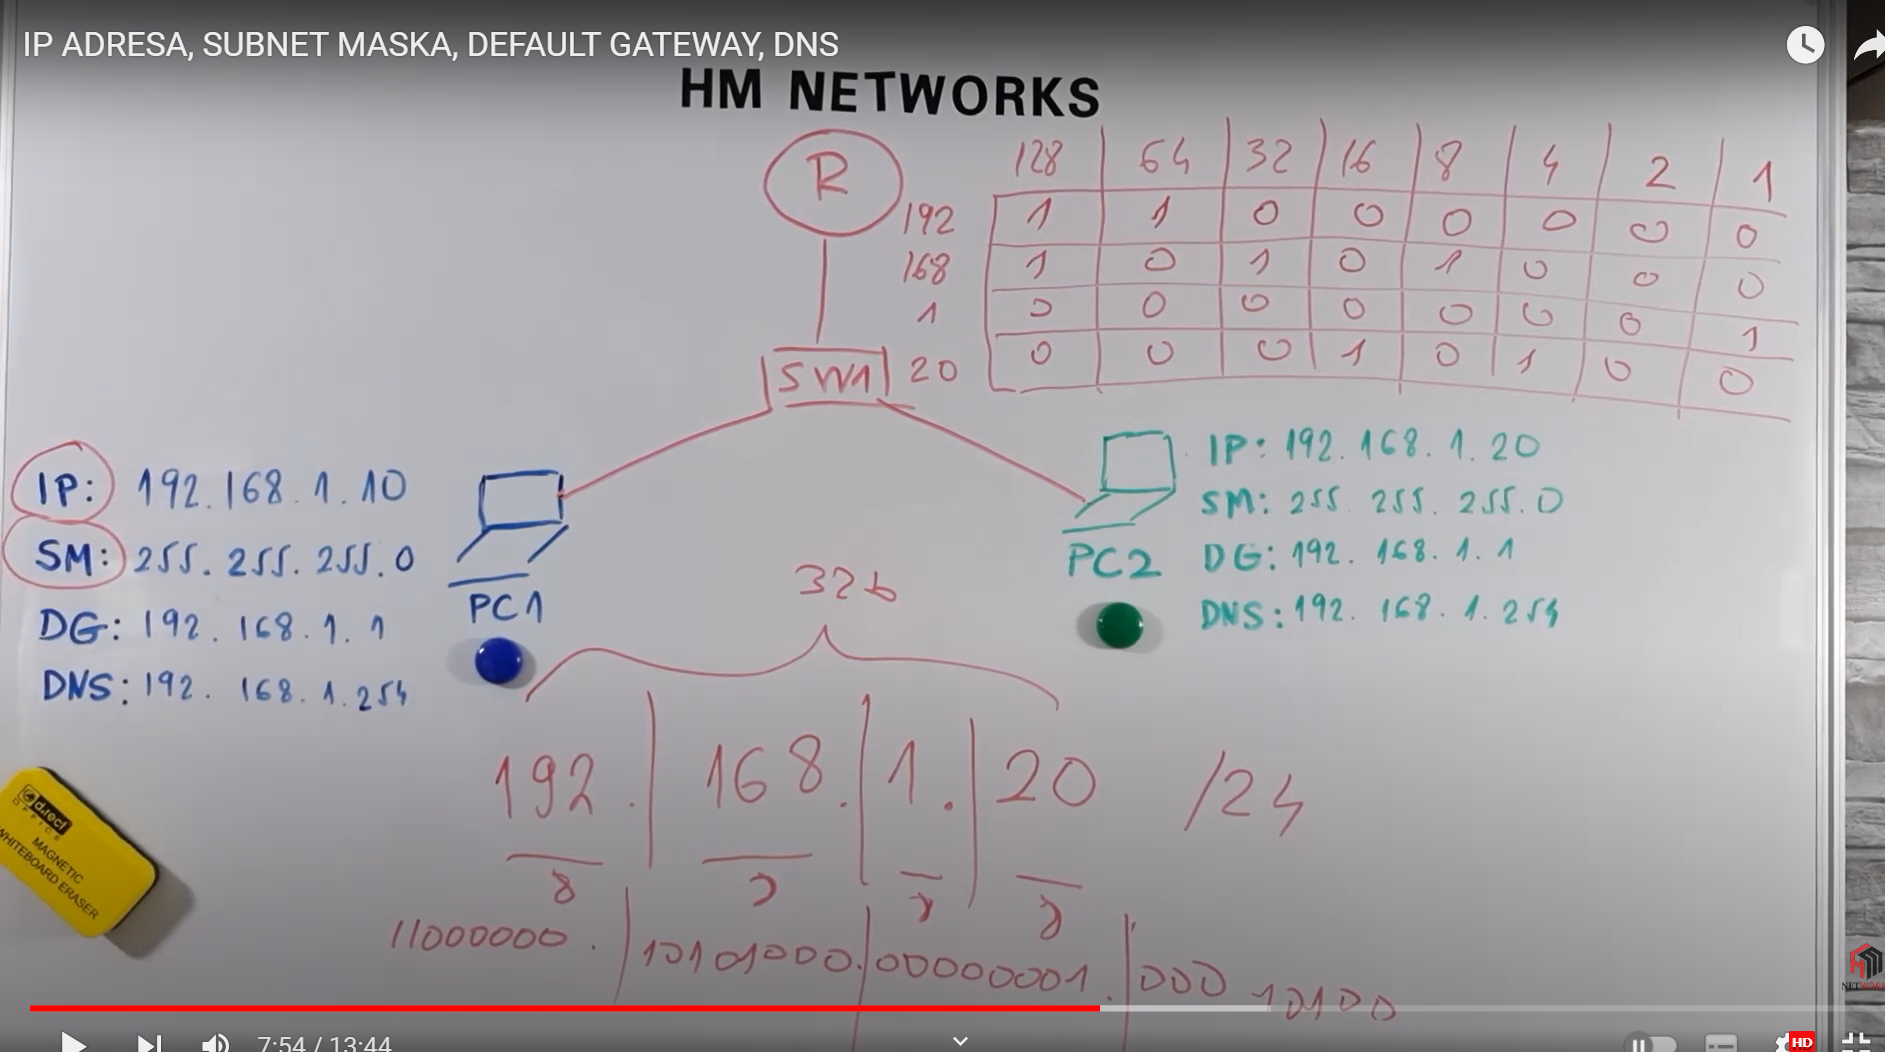 IP ADRESA, SUBNET MASKA, DEFAULT GATEWAY, DNS
HM NETWORKS
R
128 64 32 16 8 4 2 1
192 1 1 0 0 0 0 0 0
168 1 0 1 0 1 0 0 0
1 0 0 0 0 0 0 0 1
20 0 0 0 1 0 1 0 0
SW1
IP: 192.168.1.10
SM: 255.255.255.0
DG: 192.168.1.1
DNS: 192.168.1.254
PC1
IP: 192.168.1.20
SM: 255.255.255.0
DG: 192.168.1.1
DNS: 192.168.1.254
PC2
32b
192.168.1.20 /24
8 8 8 8
11000000.10101000.00000001.00010100
direct
OFFICE
MAGNETIC
WHITEBOARD ERASER
NETWORK
7:54 / 13:44
HD